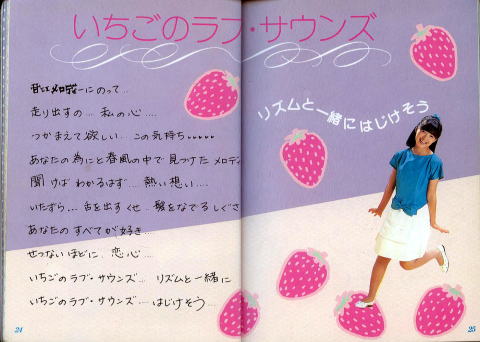 いちごのラブ・サウンズ
甘いメロディーにのって…
走り出すの… 私の心…
つかまえて欲しい… この気持ち……
あなたの為にと春風の中で見つけたメロディ
聞けばわかるはず… 熱い想い…
いたずら… 舌を出すくせ… 髪をなでるしぐさ
あなたのすべてが好き…
せつないほどに 恋心…
いちごのラブ・サウンズ… リズムと一緒に
いちごのラブ・サウンズ… はじけそう…
リズムと一緒にはじけそう
24
25